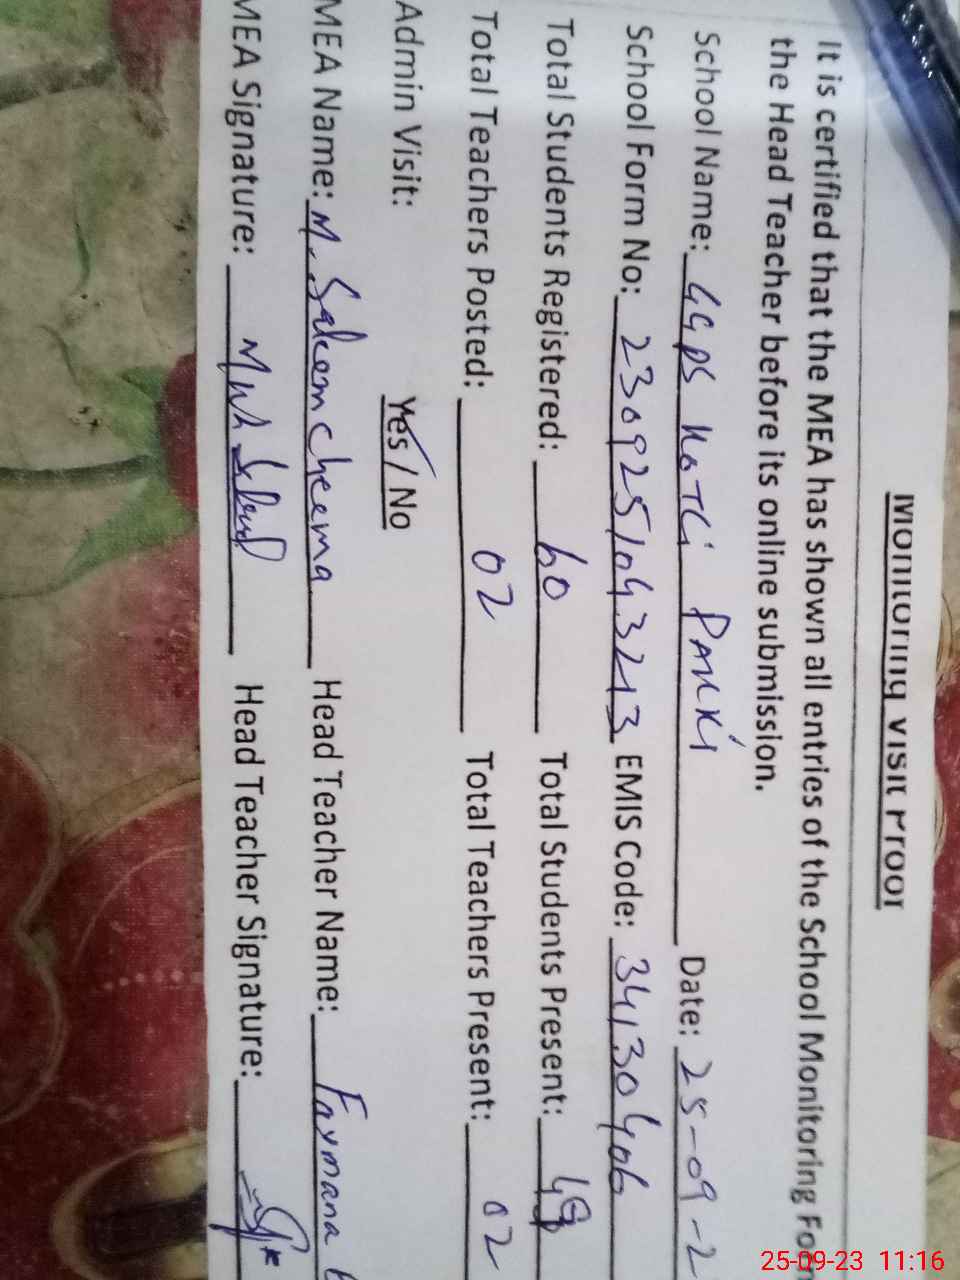 Monitoring Visit Proof
It is certified that the MEA has shown all entries of the School Monitoring Form
the Head Teacher before its online submission.
School Name: GGPS KOTLI PANKI Date: 25-09-2
School Form No: 2309251043213 EMIS Code: 34130406
Total Students Registered: 60 Total Students Present: 49
Total Teachers Posted: 02 Total Teachers Present: 02
Admin Visit: Yes / No
MEA Name: M. Saleem Cheema Head Teacher Name: Farmana
MEA Signature: Head Teacher Signature:
25-09-23 11:16